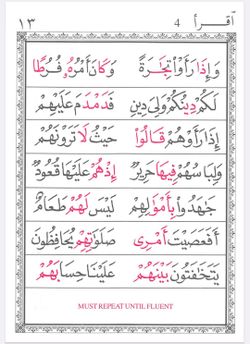 ١٣ 4 اقرأ
وَإِذَا رَأَوْا۟ تِجَـٰرَةً وَكَانَ أَمْرُهُۥ فُرُطًا
لَكُمْ دِينُكُمْ وَلِىَ دِينِ فَدَمْدَمَ عَلَيْهِمْ
إِذَا رَأَوْهُمْ قَالُوٓا۟ حَيْثُ لَا تَرَوْنَهُمْ
وَلِبَاسُهُمْ فِيهَا حَرِيرٌ إِذْ هُمْ عَلَيْهَا قُعُودٌ
جَـٰهَدُوا۟ بِأَمْوَٰلِهِمْ لَيْسَ لَهُمْ طَعَامٌ
أَفَعَصَيْتَ أَمْرِى صَلَوَٰتِهِمْ يُحَافِظُونَ
يَتَخَـٰفَتُونَ بَيْنَهُمْ عَلَيْنَا حِسَابَهُمْ
MUST REPEAT UNTIL FLUENT